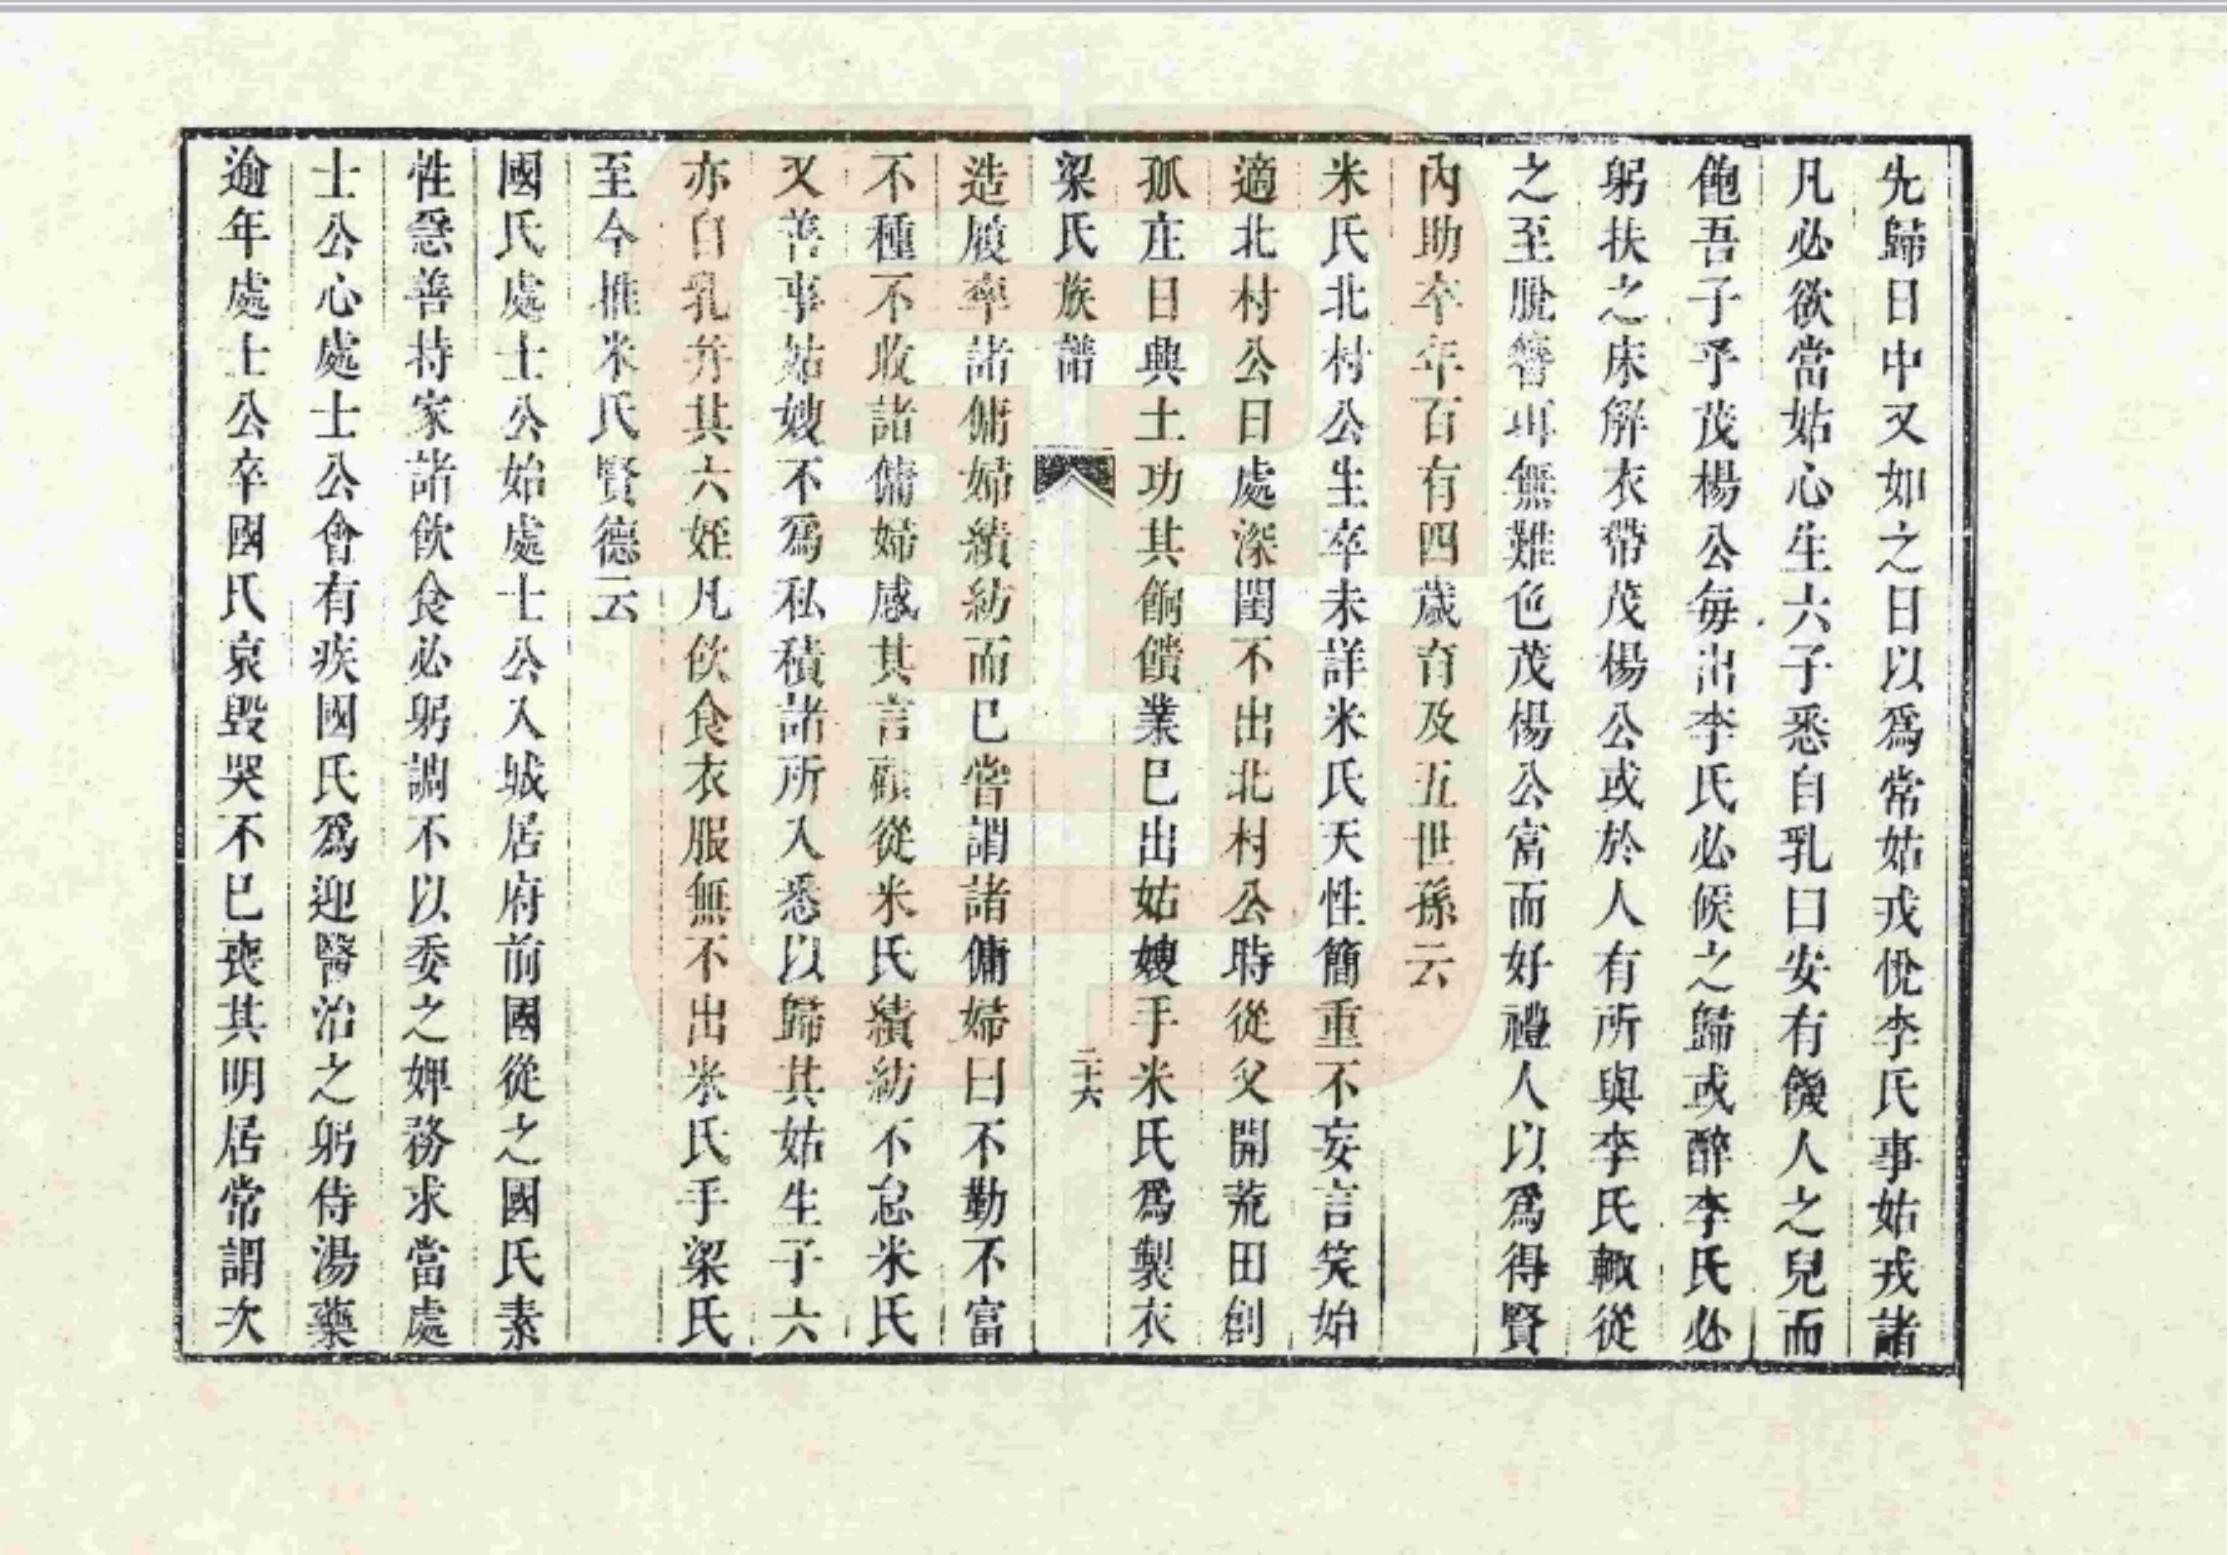 先歸日中又如之日以爲常姑戎侻李氏事姑戎諸
凡必欲當姑心生六子悉自乳曰安有饑人之兒而
飽吾子乎茂楊公每出李氏必候之歸或醉李氏必
躬扶之床解衣帶茂楊公或於人有所與李氏輙從
之至脫簪珥無難色茂楊公富而好禮人以爲得賢
內助卒年百有四歲育及五世孫云
米氏北村公生卒未詳米氏天性簡重不妄言笑始
適北村公日處深閨不出北村公時從父開荒田創
孤庄日與土功其餉饋業巳出姑嫂手米氏爲製衣
梁氏族譜
二十六
造履率諸傭婦績紡而巳嘗謂諸傭婦曰不勤不富
不種不收諸傭婦感其言願從米氏績紡不怠米氏
又善事姑嫂不爲私積諸所入悉以歸其姑生子六
亦自乳幷其六姪凡飲食衣服無不出米氏手梁氏
至今推米氏賢德云
國氏處士公始處士公入城居府前國從之國氏素
性急善持家諸飲食必躬調不以委之婢務求當處
士公心處士公會有疾國氏爲迎醫治之躬侍湯藥
逾年處士公卒國氏哀毀哭不巳喪其明居常謂次